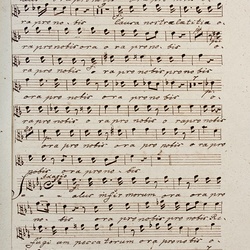 ra pro nobis causa nostræ lætitiæ o.
ra pro nobis ora o ra pro no bis o.
ra pro nobis ora pro nobis pro nobis
ora pro nobis ora pro nobis o.
ra pro nobis o rapro nobis o rapro nobis
ora pro nobis ora pro nobis
nobis ora pro no bis.
Salus infir morum ora ora pro
no. bis ora pro nobis pro nobis
fugi um pecca torum ora pro nobis o.